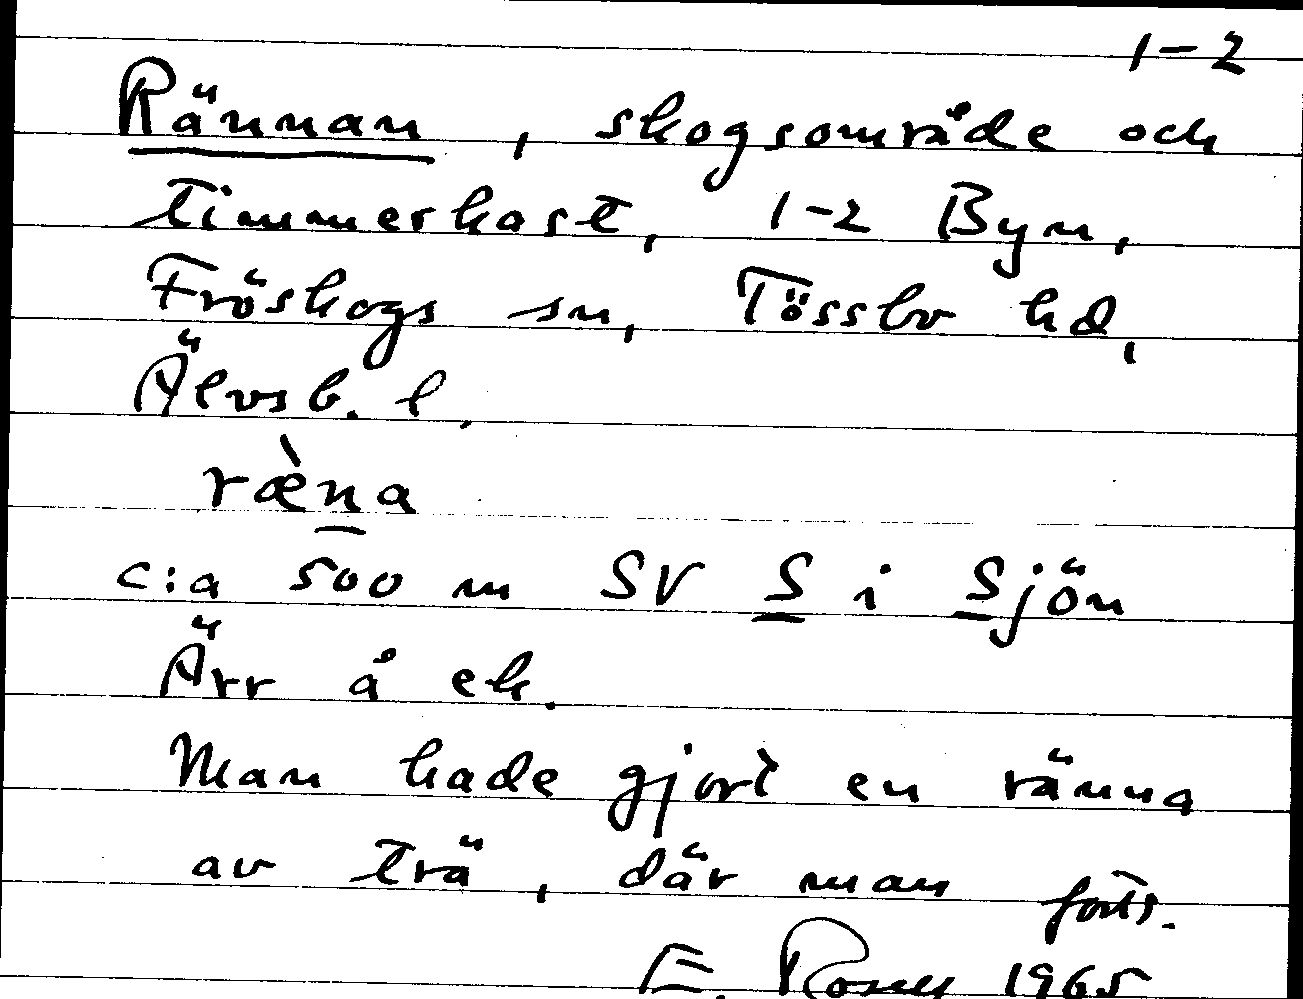 1-2
Rännan, skogsområde och
timmerkast, 1-2 Byn,
Fröskogs sn, Tössbo hd,
Älvsb. l.
ræ̀n̲a
c:a 500 m SV S i Sjön
Ärr å ek.
Man hade gjort en ränna
av trä, där man forts.
E. 1965